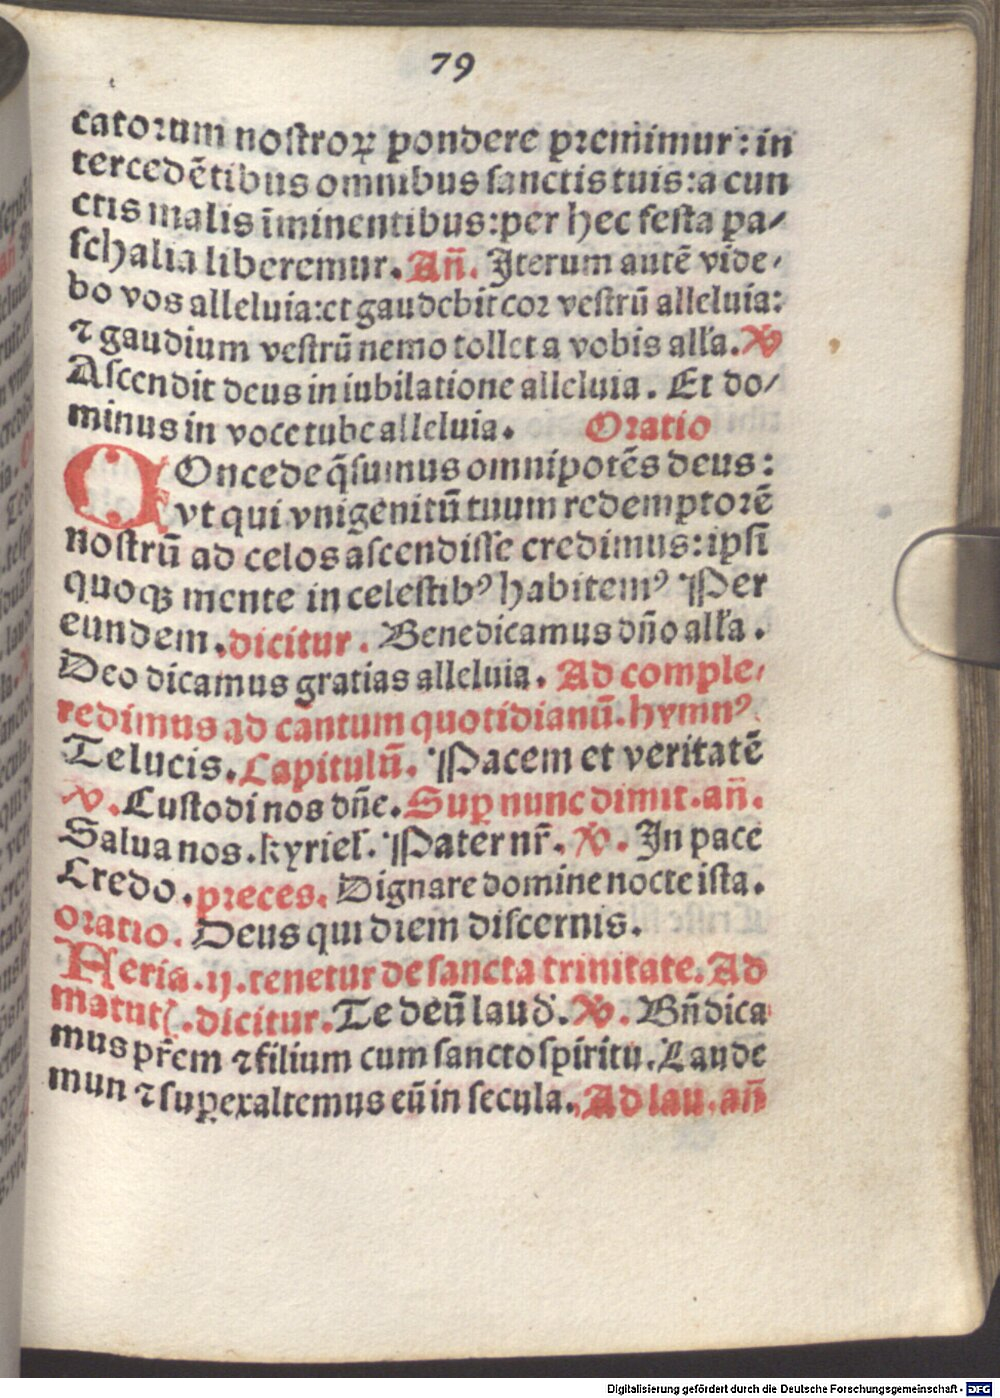 79
catorum nostroꝝ pondere premimur: in
tercedētibus omnibus sanctis tuis: a cun
ctis malis īminentibus: per hec festa pa⸗
schalia liberemur. Añ. Iterum autē vide⸗
bo vos alleluia: et gaudebit cor vestrū alleluia:
⁊ gaudium vestrū nemo tollet a vobis alľa. ℣
Ascendit deus in iubilatione alleluia. Et do⸗
minus in voce tube alleluia. Oratio
COncede q̄sumus omnipotēs deus:
vt qui vnigenitū tuum redemptorē
nostrū ad celos ascendisse credimus: ipsi
quoqꝫ mente in celestibꝰ habitemꝰ Per
eundem. dicitur. Benedicamus dño alľa.
Deo dicamus gratias alleluia. Ad comple⸗
redimus ad cantum quotidianū. hymnꝰ.
Te lucis. Capitulū. Pacem et veritatē
℣. Custodi nos dñe. Suꝑ nunc dimit. añ.
Salua nos. kyrieľ. Pater nr̄. ℣. In pace
Credo. preces. Dignare domine nocte ista.
oratio. Deus qui diem discernis.
Feria. ij. tenetur de sancta trinitate. Ad
matut. dicitur. Te deū laud. ℣. Bñdica
mus pr̄em ⁊ filium cum sancto spiritu. Laude
mun ⁊ suꝑexaltemus eū in secula. Ad lau. añ
Digitalisierung gefördert durch die Deutsche Forschungsgemeinschaft - DFG